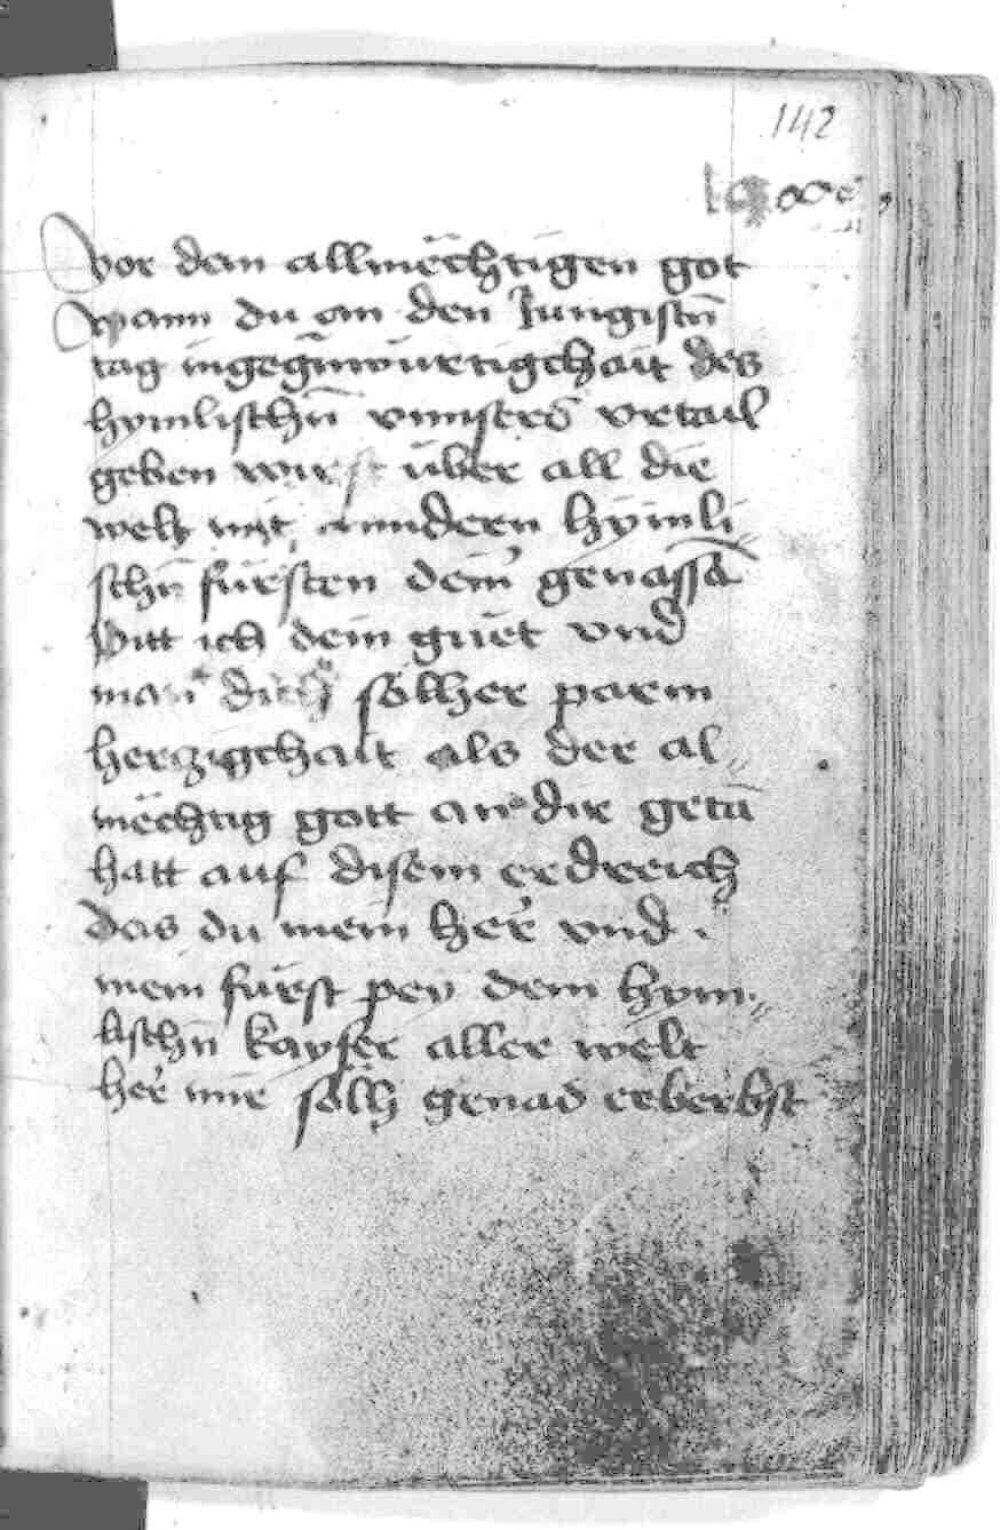 142
vor dem allmëchtigen got
wann du an den Jungistn̄
tag ingegn̄würtigchait des
hymlischn̄ vnnsers vrtail
geben wirst über all die
welt mit anndern hÿmli
schn̄ fürsten dein genassn̄
Pitt ich dein güet vnd
man dich söllher parm
herczigchait als der al„
mëchtig gott an dir getā
hatt auf disem erdreich
das du mein her vnd
mein fürst pey dem hym„
lischn̄ kayser aller welt
her mir sölh genad erberbst